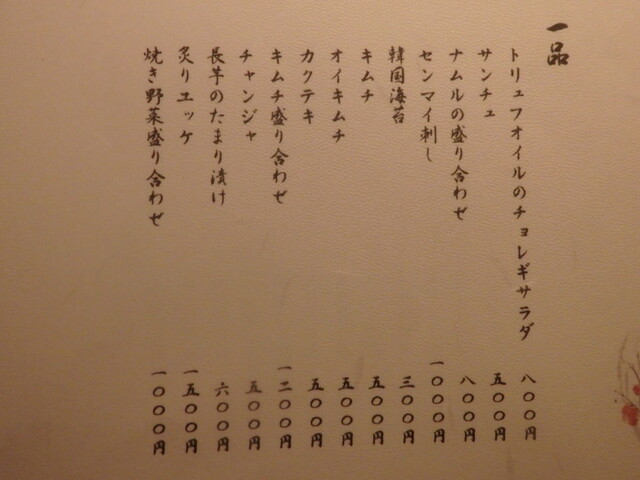 一品
トリュフオイルのチョレギサラダ 八〇〇円
サンチュ 五〇〇円
ナムルの盛り合わせ 八〇〇円
センマイ刺し 一〇〇〇円
韓国海苔 三〇〇円
キムチ 五〇〇円
オイキムチ 五〇〇円
カクテキ 五〇〇円
キムチ盛り合わせ 一二〇〇円
チャンジャ 五〇〇円
長芋のたまり漬け 六〇〇円
炙りユッケ 一五〇〇円
焼き野菜盛り合わせ 一〇〇〇円